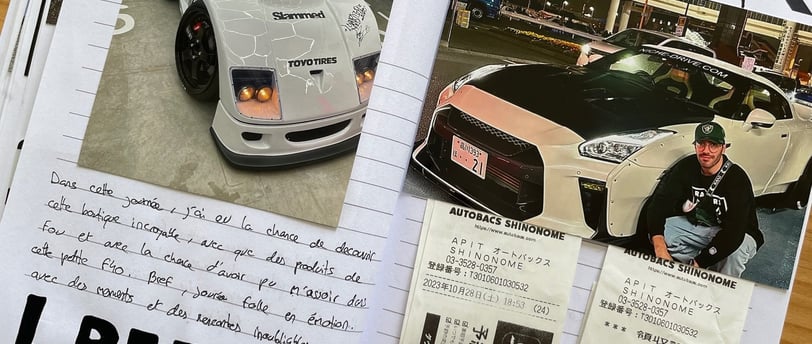 Slammed
TOYOTIRES
Dans cette journée, j'ai eu la chance de decouvrir
cette boutique incroyable, avec que des produits de
fou et avec la chance d'avoir pu m'assoir dans
cette petite F40. Bref, journée folle en émotion.
avec des moments et des rencontres
DRIVE.COM
21
AUTOBACS SHINONOME
https://www.autobacs.com
APIT オートバックス
SHINONOME
03-3528-0357
登録番号:T3010601030532
2023年10月28日(土) 18:53 (24)
AUTOBACS SHINONOME
https://www.autobacs.com
APIT オートバックス
SHINONOME
03-3528-0357
登録番号:T3010601030532